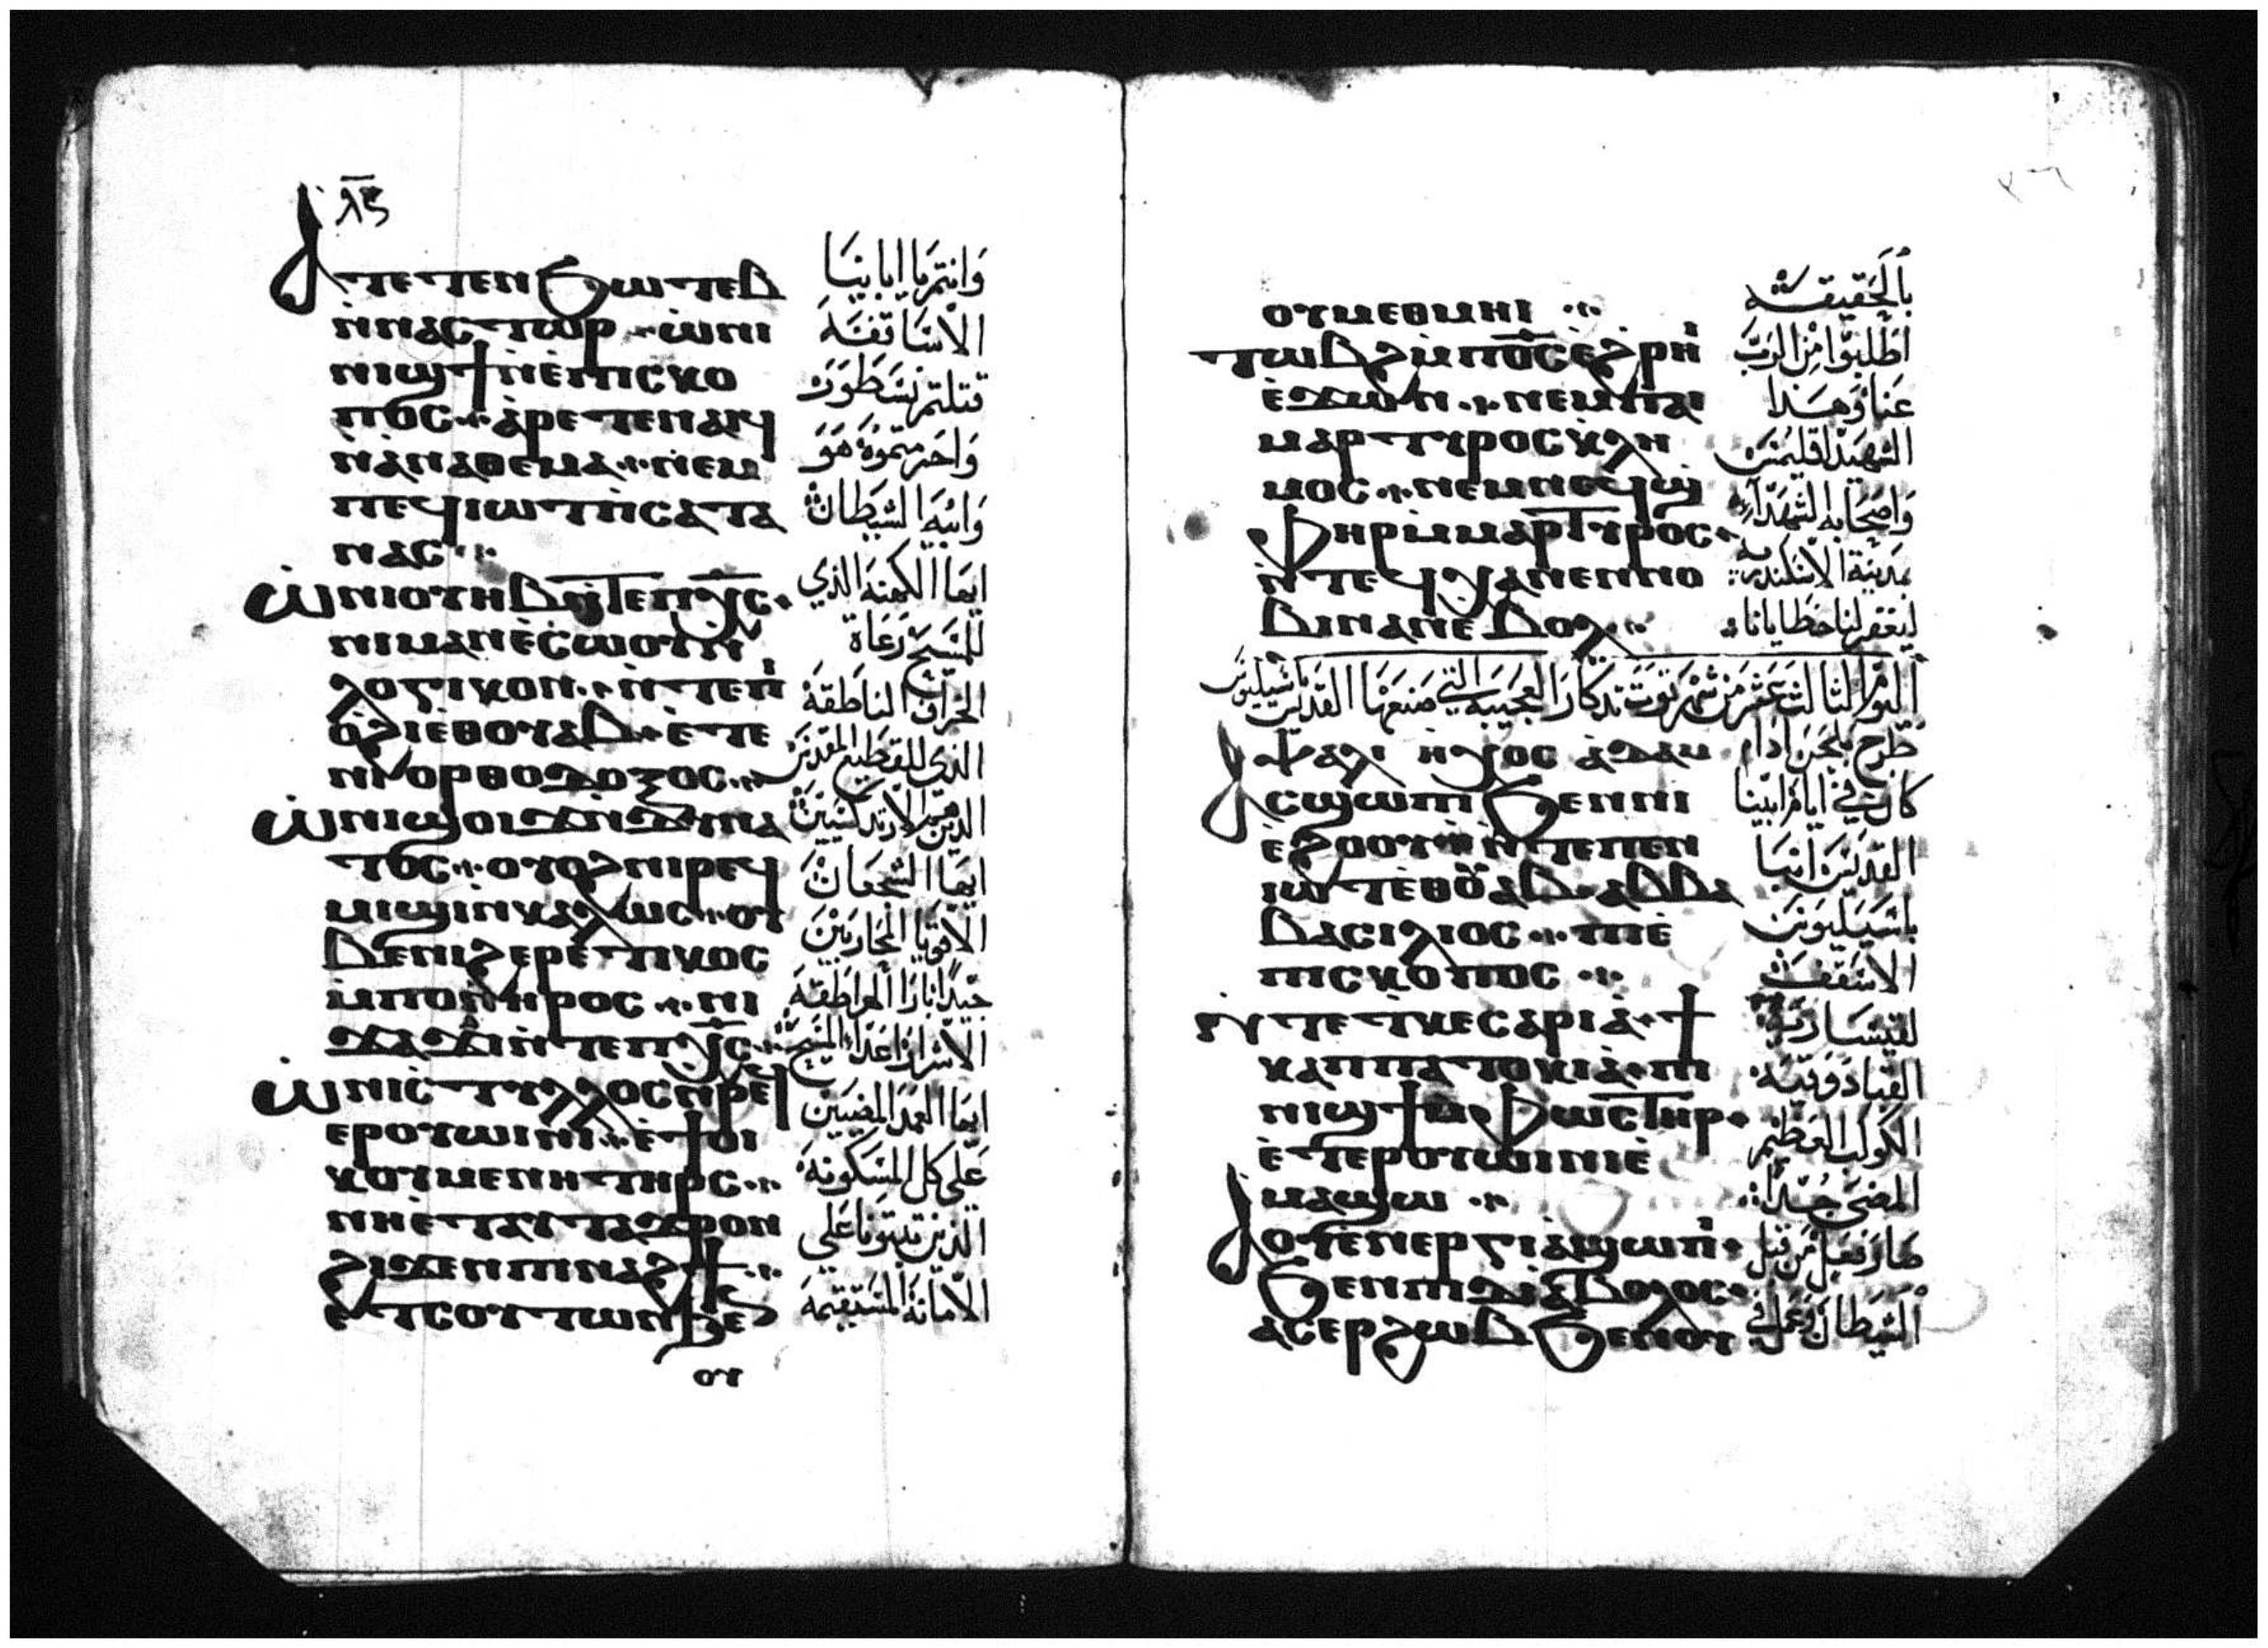 ⲗ̅ⲋ̅
ⲁⲧⲉⲧⲉⲛϧⲱⲧⲉⲃ
ⲛ̀ⲛⲁⲥⲧⲱⲣ ⲱ̀ⲛⲓ
ⲛⲓϣϯⲛ̀ⲉ̀ⲡⲓⲥⲕⲟ
ⲡⲟⲥ ⲁ̀ⲣⲉⲧⲉⲛⲁⲓϥ
ⲛ̀ⲁⲛⲁⲑⲉⲙⲁ ⲛⲉⲙ
ⲡⲉϥⲓⲱⲧⲡ̀ⲥⲁⲧⲁ
ⲛⲁⲥ
ⲱ̀ⲛⲓⲟⲩⲏⲃⲛ̀ⲧⲉⲡⲭ̅ⲥ̅
ⲛⲓⲙⲁⲛⲉ̀ⲥⲱⲟⲩⲛ̀
ⲗⲟⲅⲓⲕⲟⲛ ⲛ̀ⲧⲉⲡⲓ
ⲟ̀ϩⲓⲉⲑⲟⲩⲁⲃ ⲉ̀ⲧⲉ
ⲛⲓⲟⲣⲑⲟⲇⲟⲝⲟⲥ
ⲱ̀ⲛⲓϣⲟⲓϫⲛ̀ⲇⲩⲛⲁ
ⲧⲟⲥ ⲟⲩⲟϩⲛⲓⲣⲉϥ
ⲙⲓϣⲓⲛ̀ⲕⲁⲗⲱⲥ ⲟⲩ
ⲃⲉⲛⲓϩⲉⲣⲉⲧⲓⲕⲟⲥ
ⲙ̀ⲡⲟⲛⲏⲣⲟⲥ ⲛⲓ
ϫⲁϫⲓⲛ̀ⲧⲉⲡⲭ̅ⲥ̅
ⲱ̀ⲛⲓⲥ̀ⲧⲩⲗⲗⲟⲥⲛ̀ⲣⲉϥ
ⲉⲣⲟⲩⲱⲓⲛⲓ ⲉ̀ϯⲟⲓ
ⲕⲟⲩⲙⲉⲛⲏⲧⲏⲣⲥ
ⲛⲏⲉ̀ⲧⲁⲩⲧⲁϫⲣⲟⲛ
ϩⲓϫⲉⲛⲡⲓⲛⲁϩϯ
ⲉⲧⲥⲟⲩⲧⲱⲛϧⲉⲛ
ⲟⲩ
وانتم يا ابائنا
الاساقفة
قتلتم نسطور
واحرمتموه هو
وابيه الشيطان
ايها الكهنة الذي
للمسيح رعاة
الخراف الناطقة
الذي للقطيع المقدس
الذين هم الارتدكسيين
ايها الشجعان
الاقويا المحاربين
جيدا بازا الهراطقة
الاشرار اعداء المسيح
ايها العمد المضيين
على كل المسكونة
الذين ثبتونا على
الامانة المستقيمة
ⲟⲩⲙⲉⲑⲙⲏⲓ
ⲧⲱⲃϩⲙ̀ⲡⲟ̅ⲥ̅ⲉϩⲣⲏⲓ
ⲉ̀ϫⲱⲛ ⲛⲉⲙⲡⲁⲓ
ⲙⲁⲣⲧⲩⲣⲟⲥⲕⲗⲏ
ⲙⲟⲥ ⲛⲉⲙⲛⲉϥϣ
ⲫⲏⲣⲙ̀ⲙⲁⲣⲧⲩⲣⲟⲥ
ⲛ̀ⲧⲉϥⲭⲁⲛⲉⲛⲛⲟ
ⲃⲓⲛⲁⲛⲉ̀ⲃⲟⲗ
بالحقيقة
اطلبوا من الرب
عنا وهذا
الشهيد اقليمس
واصحابه الشهداء
بمدينة الاسكندرية
ليغفر لنا خطايانا
اليوم الثالث عشر من شهر توت تذكار العجيبة التي صنعها القديس باسيليوس
ⲯⲁⲗⲓ ⲏⲭⲟⲥ ⲁ̀ⲇⲁⲙ طرح بلحن ادام
ⲁⲥϣⲱⲡⲓϧⲉⲛⲛⲓ
ⲉ̀ϩⲟⲟⲩ ⲛ̀ⲧⲉⲡⲉⲛ
ⲓⲱⲧⲉⲑⲟⲩⲁⲃ ⲁⲃⲃⲁ
ⲃⲁⲥⲓⲗⲓⲟⲥ ⲡⲓⲉ̀
ⲡⲓⲥⲕⲟⲡⲟⲥ
ⲛ̀ⲧⲉⲧⲕⲉⲥⲁⲣⲓⲁ̀ ϯ
ⲕⲁⲡⲡⲁⲧⲟⲕⲓⲁ̀ ⲡⲓ
ⲛⲓϣϯⲙ̀ⲫⲱⲥⲧⲏⲣ
ⲉ̀ⲧⲉⲣⲟⲩⲱⲓⲛⲓⲉ̀
ⲙⲁϣⲱ
ⲟⲩⲉⲛⲉⲣⲅⲓⲁ̀ϣⲱⲡⲓ
ϧⲉⲛⲡⲓⲇⲓⲁ̀ⲃⲟⲗⲟⲥ
ⲁⲥⲉⲣϩⲱⲃϧⲉⲛⲟⲩ
كان في ايام ابينا
القديس انبا
باسيليوس
الاسقف
لقيسارية
القبادوقية
الكوكب العظيم
المضى جدا
صار فعل من قبل
الشيطان وعمل في